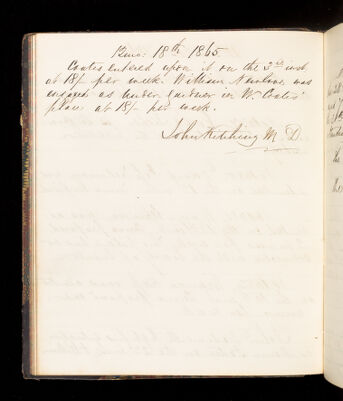 18th 1865
Coates entered upon it on the 3rd inst
at 18/- per week. William was
engaged as under gardner in W. Coates'
place at 15/- per week.
John Kitching M.D.